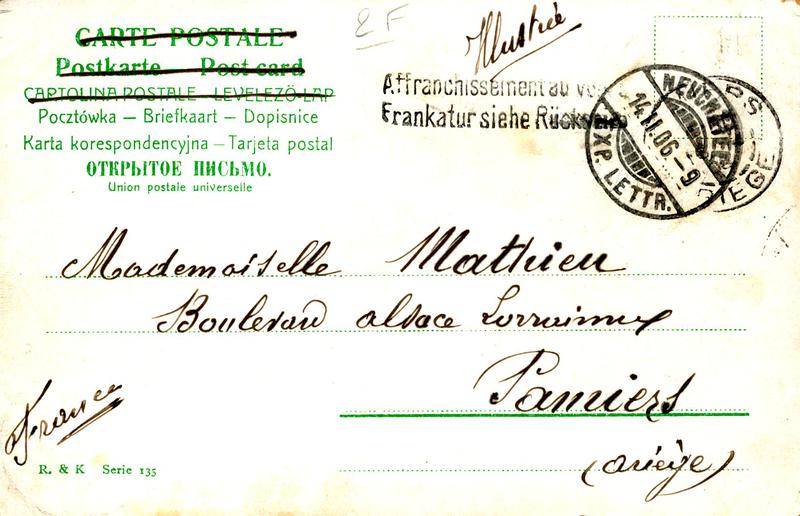 CARTE POSTALE
Postkarte — Post card
CARTOLINA POSTALE — LEVELEZÖ-LAP
Pocztówka — Briefkaart — Dopisnice
Karta korespondencyjna — Tarjeta postal
ОТКРЫТОЕ ПИСЬМО.
Union postale universelle
2F
Illustrée
Affranchissement au
Frankatur siehe Rückseite
NEUCHATEL
14.II.06-9
EXP. LETTR.
Mademoiselle Mathieu
Boulevard alsace Lorrainne
Pamiers
(ariège)
France
R. & K Serie 135